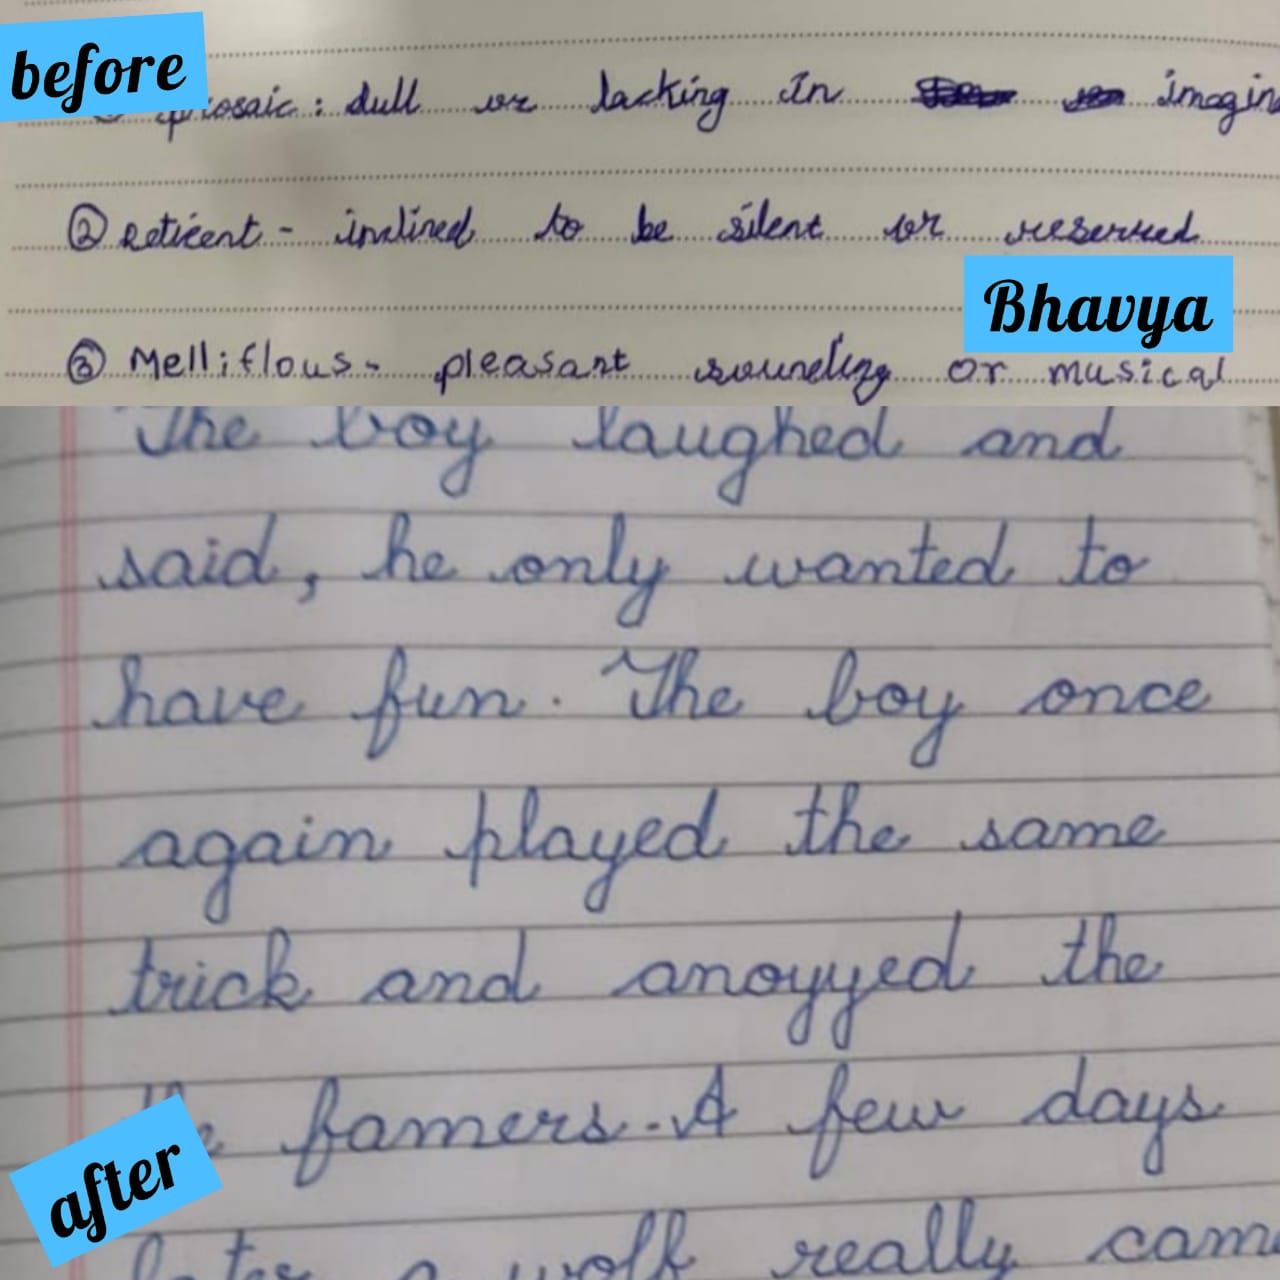 before
prosaic : dull or lacking in imagin
② reticent - inclined to be silent or reserved
Bhavya
③ Melliflous - pleasant sounding or musical
The boy laughed and
said, he only wanted to
have fun. The boy once
again played the same
trick and anoyyed the
famers. A few days
after
later a wolf really came